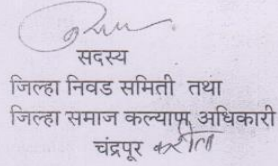 सदस्य
जिल्हा निवड समिती तथा
जिल्हा समाज कल्याण अधिकारी
चंद्रपूर करीता